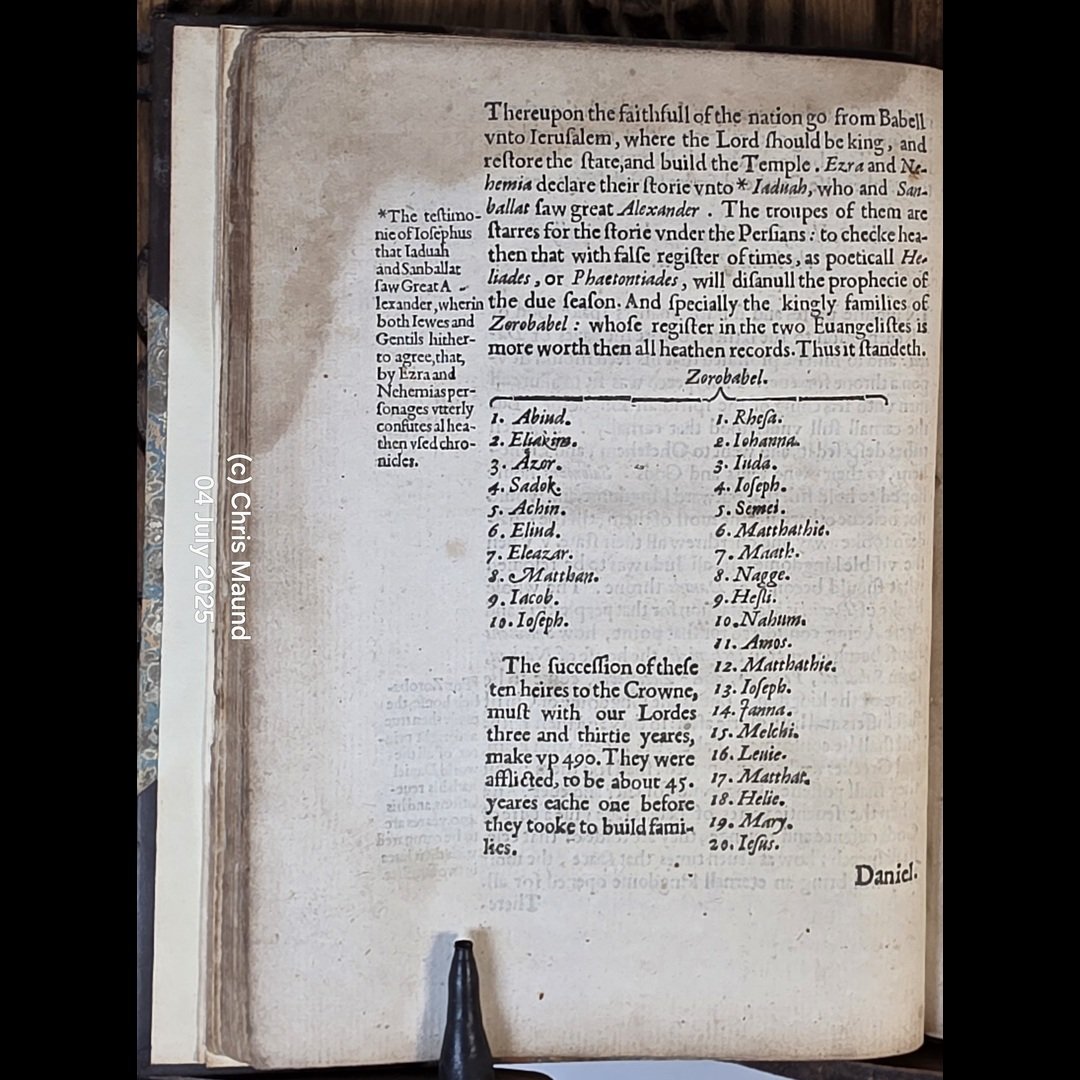 Thereupon the faithfull of the nation go from Babell
vnto Ieruſalem, where the Lord ſhould be king, and
reſtore the ſtate, and build the Temple. Ezra and Ne-
hemia declare their ſtorie vnto * Iaduah, who and San-
ballat ſaw great Alexander. The troupes of them are
ſtarres for the ſtorie vnder the Perſians: to checke hea-
then that with falſe regiſter of times, as poeticall He-
liades, or Phaetontiades, will diſanull the prophecie of
the due ſeaſon. And ſpecially the kingly families of
Zorobabel: whoſe regiſter in the two Euangeliſtes is
more worth then all heathen records. Thus it ſtandeth.
*The teſtimo-
nie of Ioſephus
that Iaduah
and Sanballat
ſaw Great A-
lexander, wherin
both Iewes and
Gentils hither-
to agree, that,
by Ezra and
Nehemias per-
ſonages vtterly
confutes al hea-
then vſed chro-
nicles.
Zorobabel.
1. Abiud.
2. Eliakim.
3. Azor.
4. Sadok.
5. Achin.
6. Eliud.
7. Eleazar.
8. Matthan.
9. Iacob.
10. Ioſeph.
The ſucceſſion of theſe
ten heires to the Crowne,
muſt with our Lordes
three and thirtie yeares,
make vp 490. They were
afflicted, to be about 45.
yeares eache one before
they tooke to build fami-
lies.
1. Rheſa.
2. Iohanna.
3. Iuda.
4. Ioſeph.
5. Semei.
6. Matthathie.
7. Maath.
8. Nagge.
9. Heſli.
10. Nahum.
11. Amos.
12. Matthathie.
13. Ioſeph.
14. Janna.
15. Melchi.
16. Leuie.
17. Matthat.
18. Helie.
19. Mary.
20. Ieſus.
Daniel.
(c) Chris Maund
04 July 2025